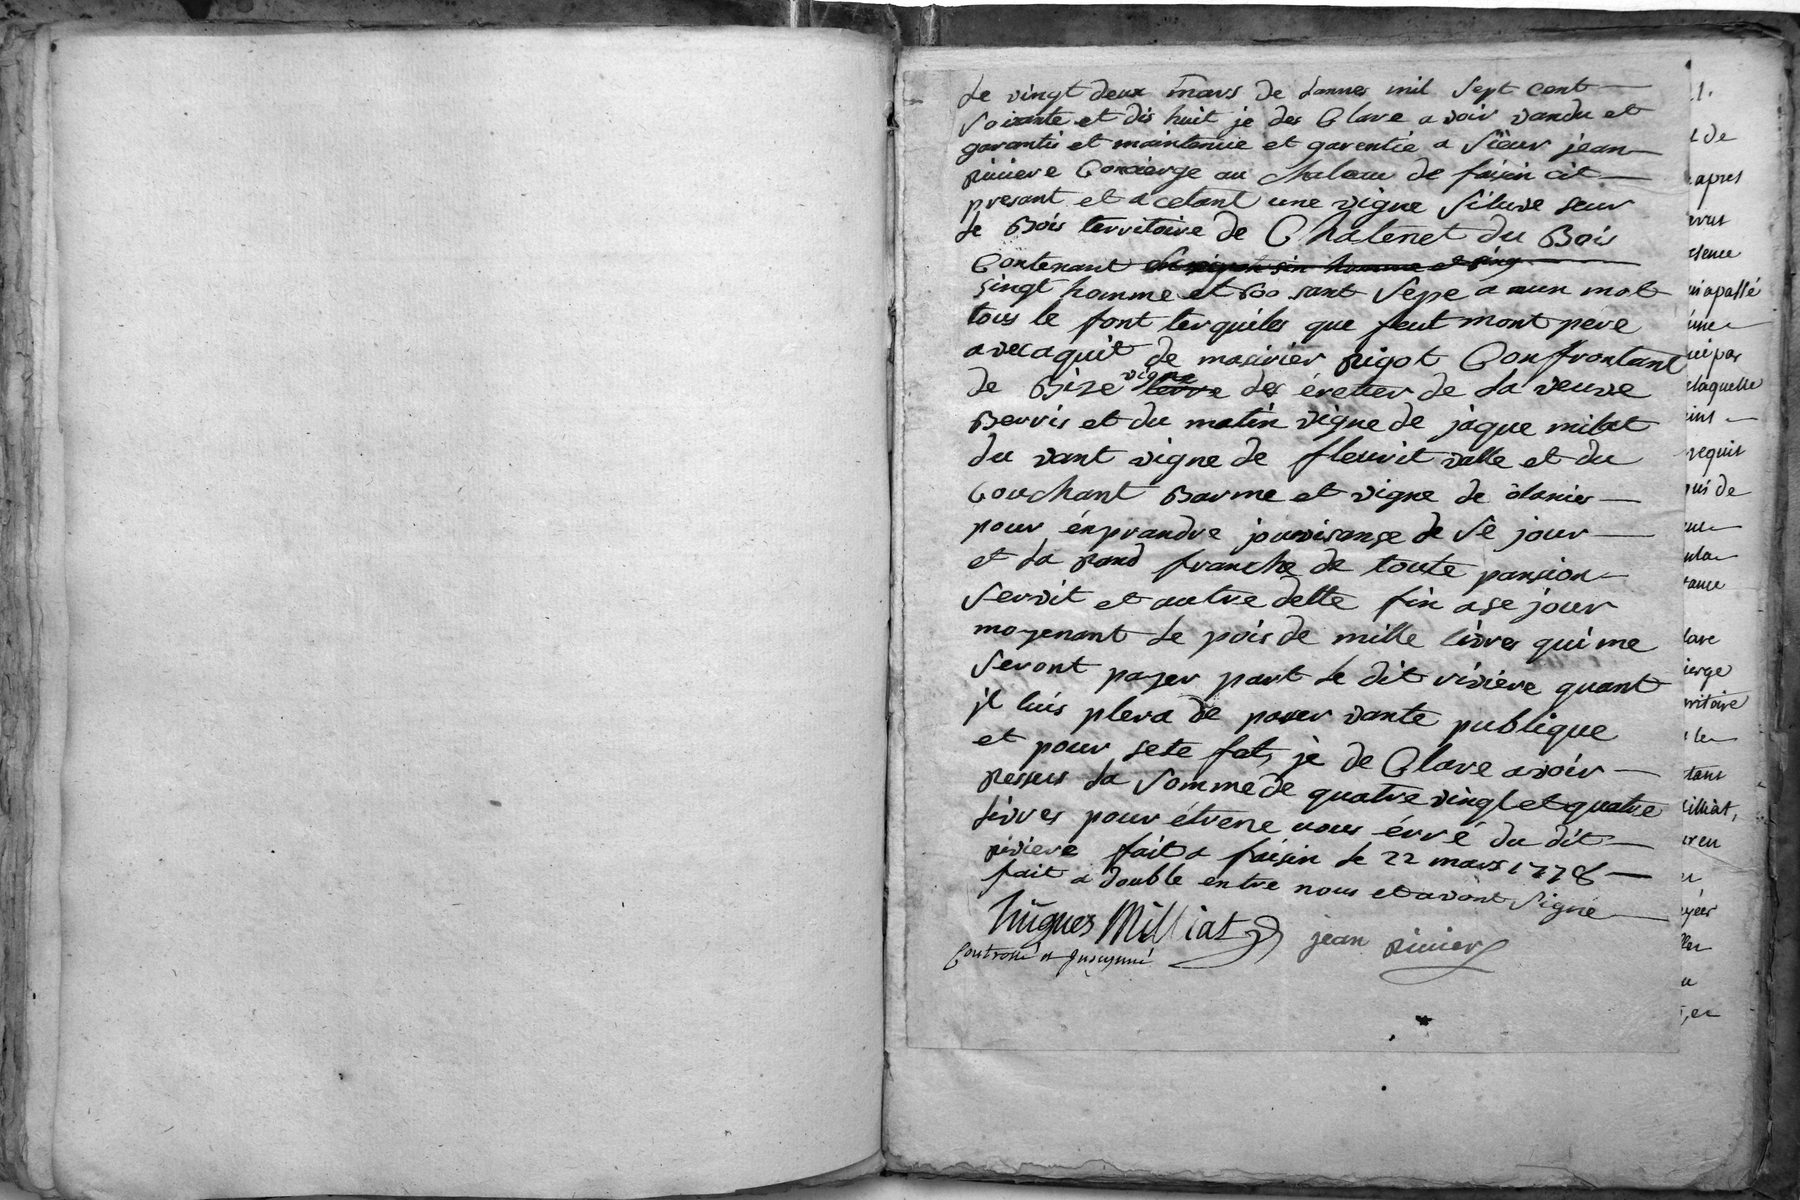 Le vingt deux mars de lannes mil sept cent
soixante et dis huit je des Clare avoir vandu et
garantis et maintenue et garentie a sieur jean
riviere Concierge au chataeu de faisin cit
presant et acetant une vigne situee seur
le Bois territoire de Chatenet du Bois
Contenant
singt homme et 600 sant sepe a aun mot
tous le font terquiles que feut mont pere
avec aquit de masivier rigot Confrontant
de Bize vigne terre des éretier de la veuve
Berris et du matin vigne de jàque milat
du vant vigne de fleurit valle et du
Couchant Barme et vigne de ôlanier
pour énprandre jouvisange de se jour
et la rand franche de toute pansion
servit et autre dette fin a se jour
moyenant le pois de mille livres qui me
seront payer part le dit riviere quant
jl luis plera de paser vante publique
et pour sete fat, je de Clare avoir
ressus la somme de quatre vingt et quatre
livres pour étrene nous érré du dit
riviere fait a faisin le 22 mars 1778
fait a double entre nous et avont signé
hugues Milliat jean rivier
Controllé et Insinué
11.
t de
apres
esence
ui apassé
ui par
laquelle
requis
uis de
tance
lare
ierge
rritoire
tant
illiat,